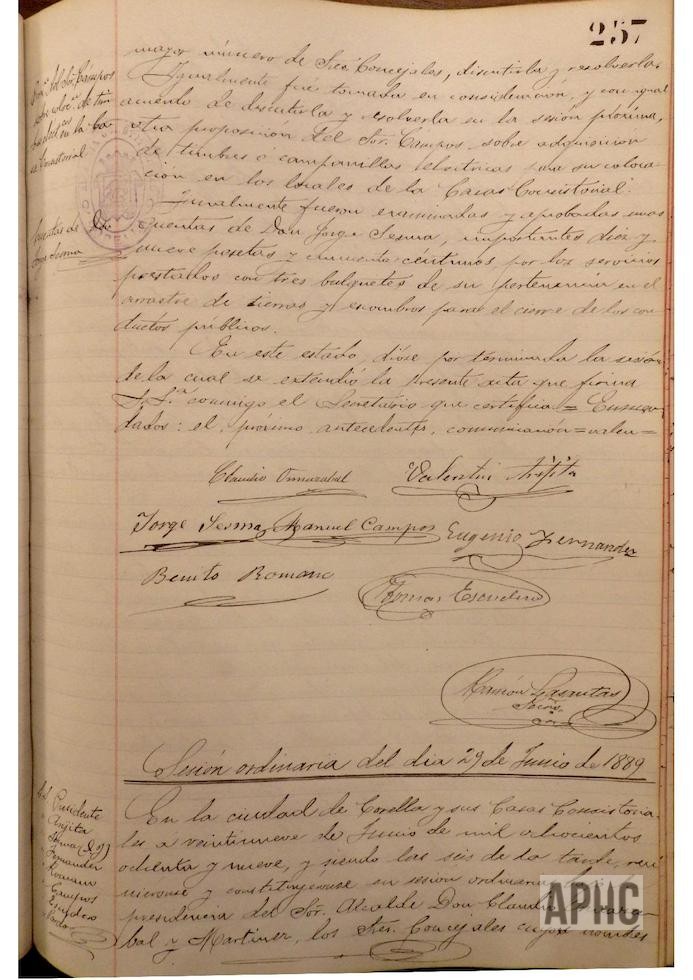 257
mayor número de Sres Concejales, discutirla y resolverla.
Igualmente fué tomada en consideración, y con igual
acuerdo de discutirla y resolverla en la sesión próxima,
otra proposición del Sor. Campos, sobre adquisición
de timbres ó campanillas eléctricas para su coloca-
ción en los locales de la Casas Consistorial.
Igualmente fueron examinadas y aprobadas unas
cuentas de Don Jorge Sesma, importantes diez y
nueve pesetas y cincuenta centimos por los servicios
prestados con tres bulquetes de su pertenencia en el
arrastre de tierras y escombros para el cierre de los con-
ductos públicos.
En este estado, dióse por terminada la sesión
de la cual se extendió la presente acta que firma
S.Sª. conmigo el Secretario que certifica = Enmen-
dados: el próximo antecedentes, comunicación = valen =
del Sor. Campos
de tim
en la ca
sa Consistorial.
Cuentas de Dn
Jorge Sesma
Claudio Ormazabal
Valentin Arijita
Jorge Sesma
Manuel Campos
Eugenio Fernandez
Benito Romano
Tomas Escudero
Ramón Lasantas
Srio.
Sesión ordinaria del dia 29 de Junio de 1889
Presidente
Arijita
Sesma
Fernandez
Romano
Campos
Escudero
En la ciudad de Corella y sus Casas Consistoria-
les a veintinueve de Junio de mil ochocientos
ochenta y nueve, y siendo las seis de la tarde, reu-
nieronse y constituyeronse en sesion ordinaria, bajo la
presidencia del Sor. Alcalde Don Claudio
bal y Martinez, los Sres. Concejales cuyos nombres
APHC